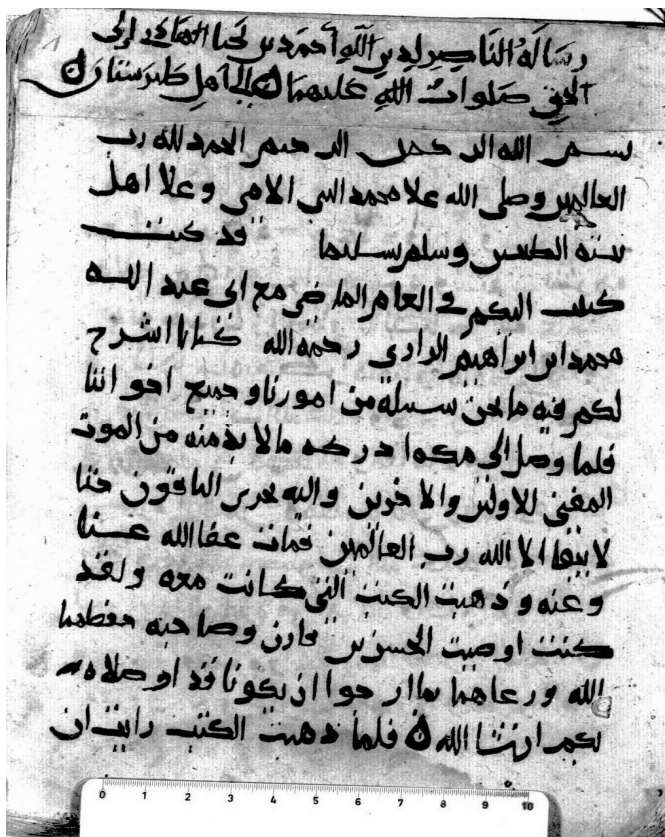 رسالة الناصر لدين الله أحمد بن يحيا الهادي إلى
الحق صلوات الله عليهما إلى أهل طبرستان
بسم الله الرحمن الرحيم الحمد لله رب
العالمين وصلى الله علا محمد النبي الامي وعلا اهل
بيته الطيبين وسلم تسليما قد كنت
كتبت اليكم في العام الماضي مع ابي عبد الله
محمد ابن ابراهيم الرازي رحمه الله كتابا اشرح
لكم فيه ما نحن بسبيله من امورنا وجميع اخواننا
فلما وصل الى مكه ادركه ما لا بد منه من الموت
المفني للاولين والاخرين واليه يجري الباقون حتا
لا يبقا الا الله رب العالمين فمات عفا الله عنا
وعنه وذهبت الكتب التي كانت معه ولقد
كنت اوصيت الحسن بن وصاحبه حفظهما
الله ورعاهما بما ارجوا ان يكونا قد اوصلاه
لكم ان شا الله فلما ذهبت الكتب رايت ان
0 1 2 3 4 5 6 7 8 9 10